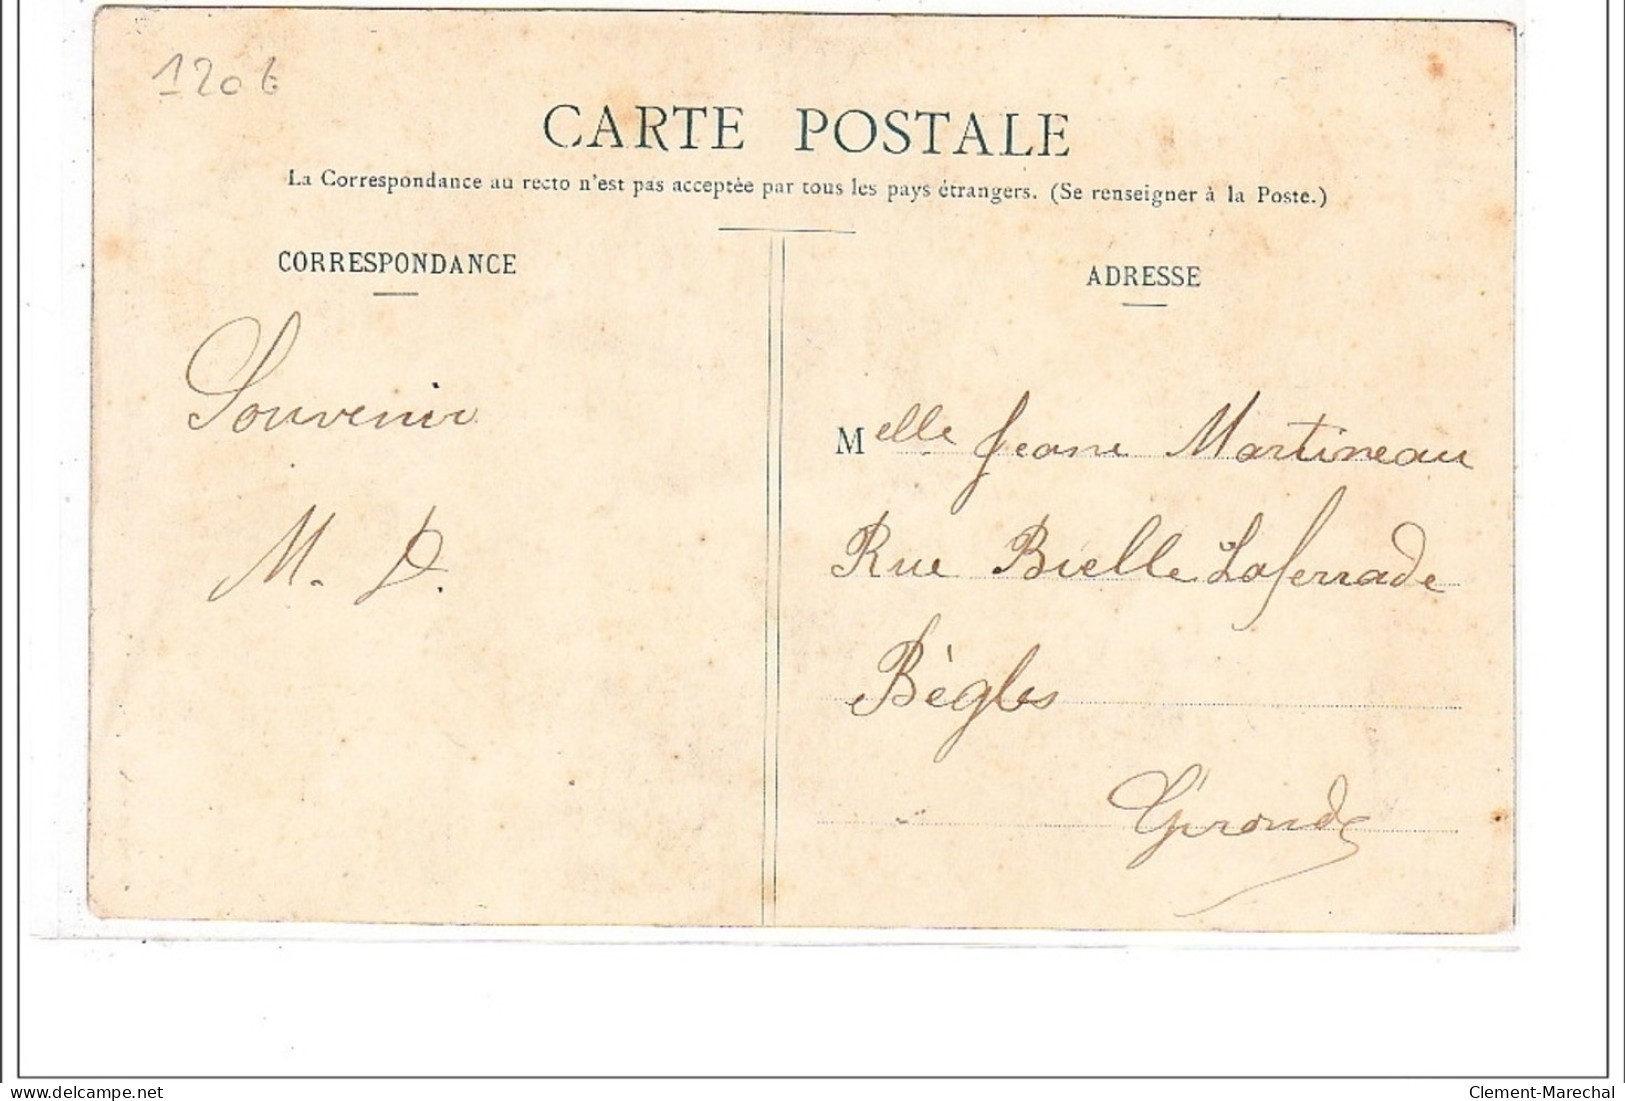 120€
CARTE POSTALE
La Correspondance au recto n'est pas acceptée par tous les pays étrangers. (Se renseigner à la Poste.)
CORRESPONDANCE
Souvenir
M. D.
ADRESSE
Melle Jeane Martineau
Rue Bielle Laferrade
Bègles
Gironde
delcampe.net
Clement-Marechal